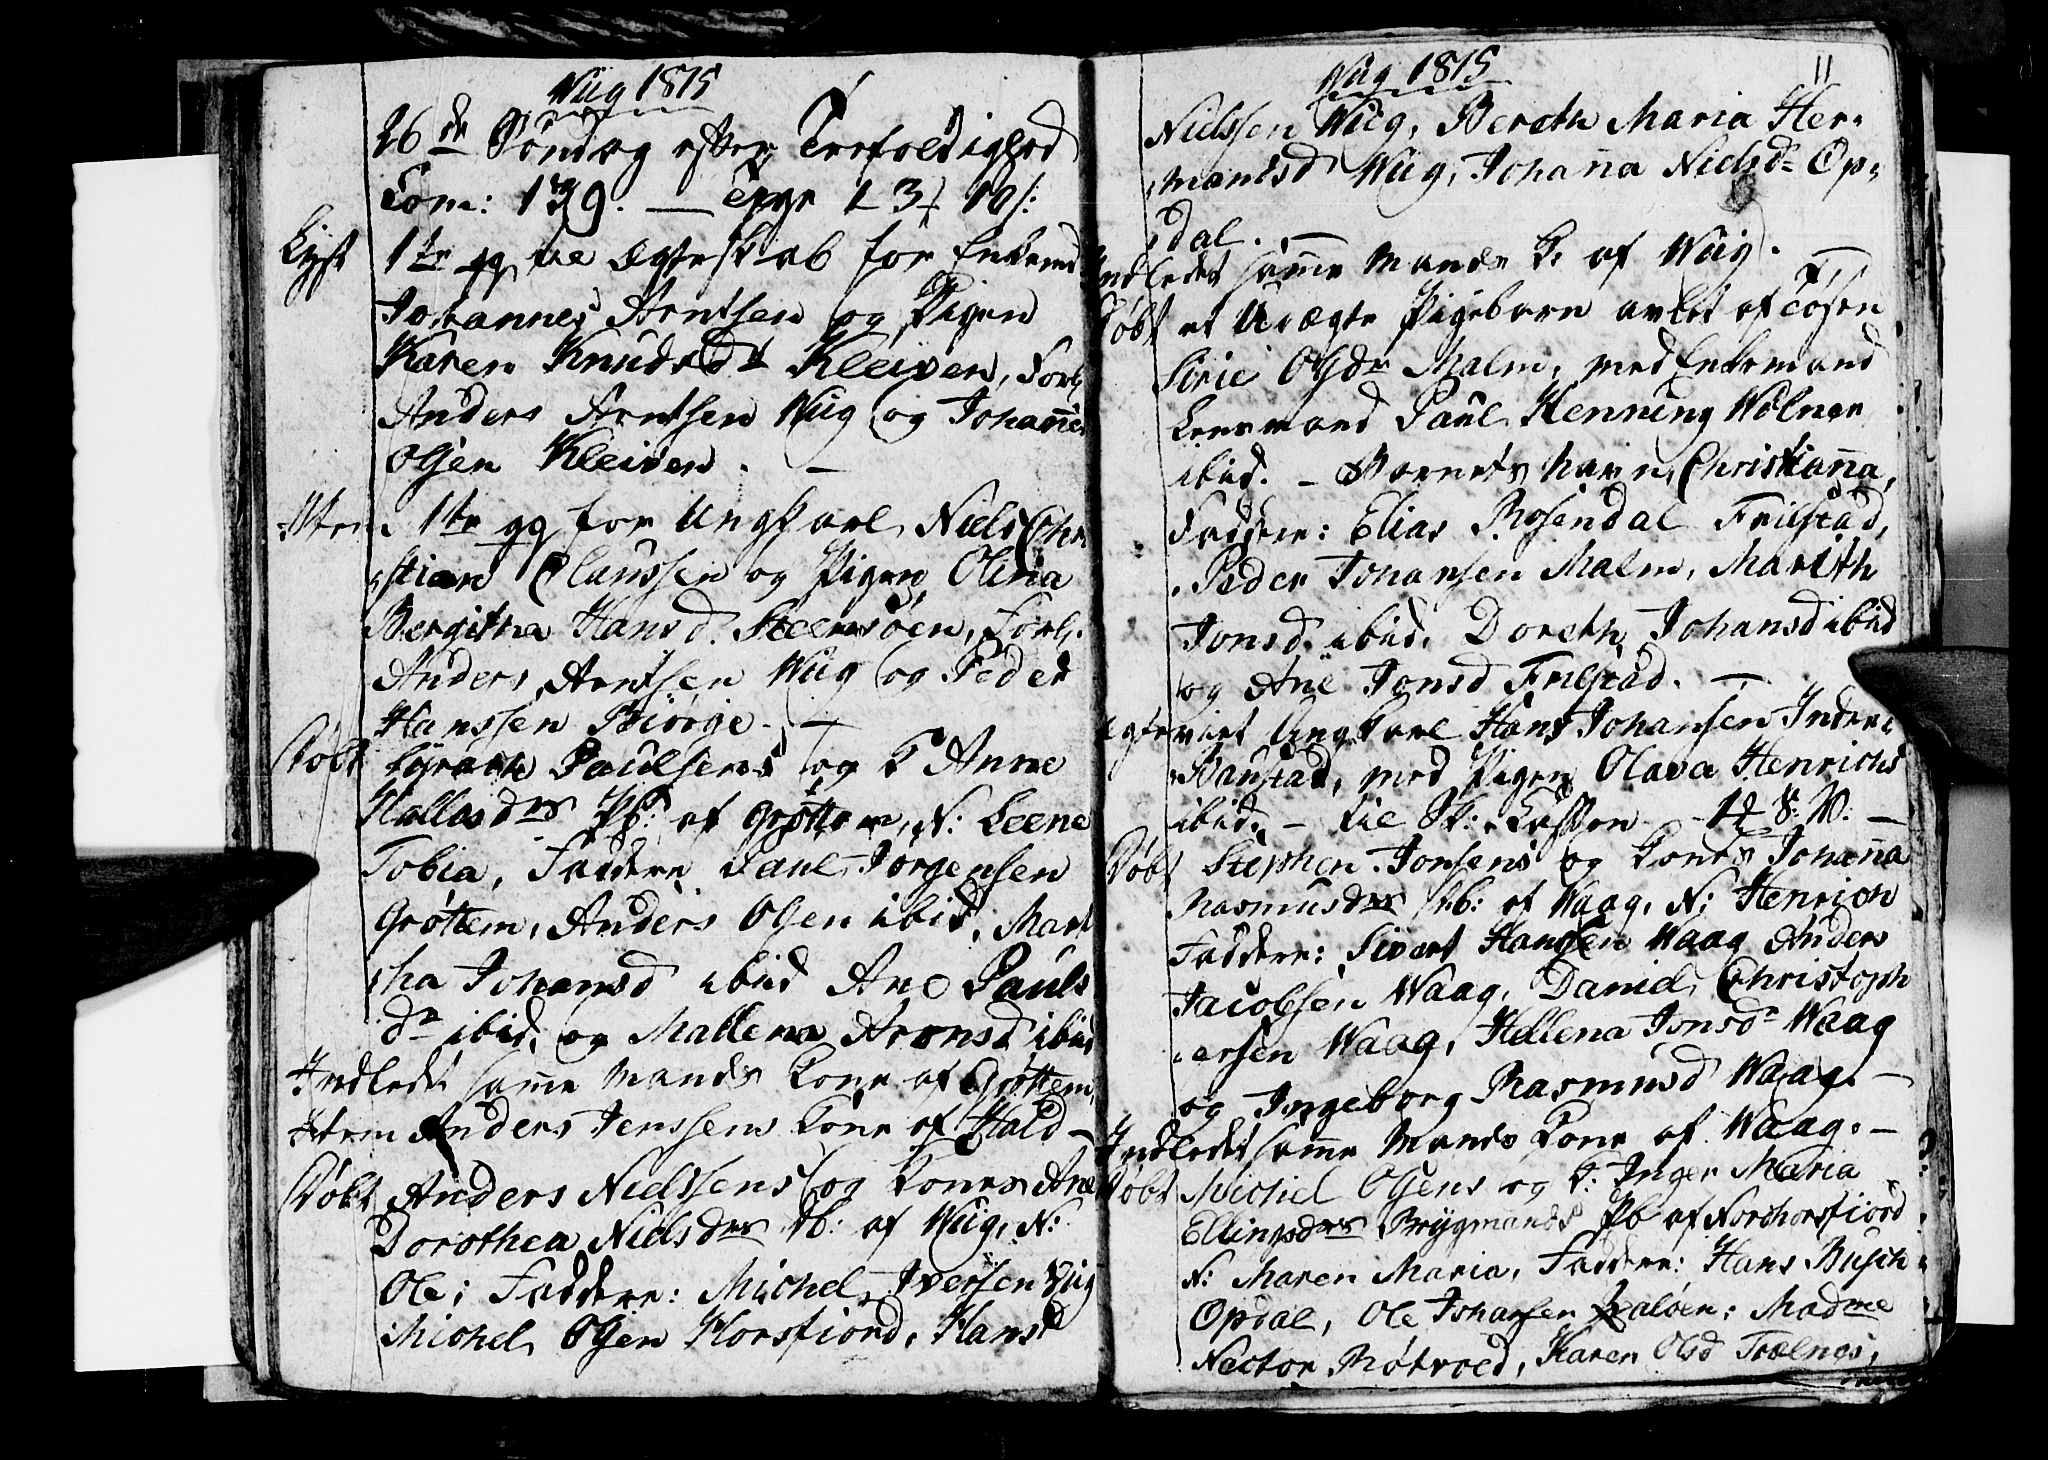 Wiig 1815
26de Søndag efter Trefoldighed
Com: 139. — Tavle 1 3 10 s:
Lyst 1te gg til Ægteskab for Enkemd
Johannes Arntsen og Pigen
Karen Knudsdt Kleiven, Forl:
Anders Arntsen Wiig og Johannes
Olsen Kleiven. —
Item 1te gg for Ungkarl Niels Chri
stian Claussen og Pigen Olina
Bergitha Hansd. Steensøen, Forl.
Anders Arntsen Wiig og Peder
Hanssen Biørge. —
Døbt Paulsens og K Anne
Hallesdrs Pb: af Grøttem, N: Leene
Tobia, Faddere Paul Jørgensen
Grøttem, Anders Olsen ibid, Mart
ha Johansd ibid Ane Pauls
dr ibid, og Mallena Aronsd ibid
Indledt samme Mands Kone af Grøttem,
Item Anders Jenssens Kone af Hald —
Døbt Anders Nielssens og Kones Ane
Dorothea Nielsdrs db: af Wiig, N:
Ole; Faddere: Michel Iversen Wiig
Michel Olsen Horsfiord, Hans
Wiig 1815
11
Nielssen Wiig, Bereth Maria Her-
mansd Wiig, Johanna Nielsdr Op-
dal. —
Indledet samme Mands K: af Wiig. —
Døbt et Uægte Pigebarn avlet af Tøsen
Sirie Olsdr Malm, med Enkemand
Lensmand Paul Henning Wølner
ibid. — Barnets Navn Christianna,
Faddere: Elias Rosendal Frilstad,
Peder Johansen Malm, Marith
Jonsd ibid, Doreth Johansd ibid
og Ane Jonsd Frilstad. —
Egteviet Ungkarl Hans Johansen Inder
Banstad, med Pigen Olava Henrichs
ibid. —
Døbt Stephen Jonsens og Kones Johanna
Rasmusdrs db: af Waag, N: Henrich
Faddere: Sivert Hansen Waag Anders
Jacobsen Waag, Daniel Christoph
ersen Waag, Hellena Jonsdr Waag
og Ingeborg Rasmusd Waag. —
Indledet samme Mands Kone af Waag. —
Døbt Michel Olsens og K: Inger Maria
Ellingsdrs Brygmands Pb af Nordhorsfiord
N: Maren Maria, Faddere: Hans Busch
Opdal, Ole Johansen Kaløen; Madme
Nector Røtvold, Karen Olsd Trælnes,